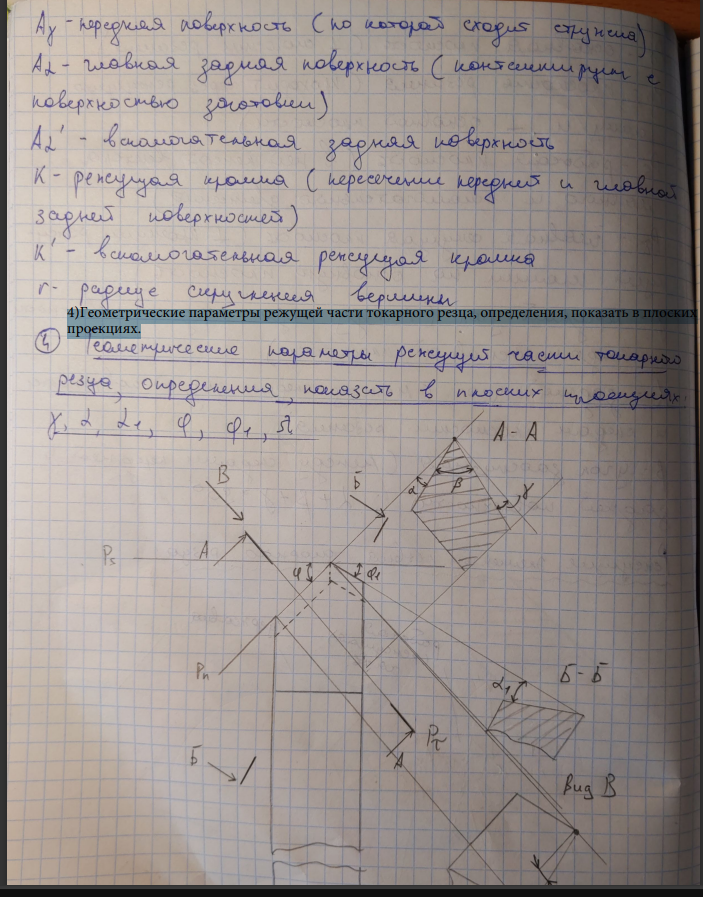 Aγ - передняя поверхность (по которой сходит стружка)
Aα - главная задняя поверхность (контактирует с
поверхностью заготовки)
Aα' - вспомогательная задняя поверхность
K - режущая кромка (пересечение передней и главной
задней поверхностей)
K' - вспомогательная режущая кромка
r - радиус скругления вершины
4)Геометрические параметры режущей части токарного резца, определения, показать в плоских
проекциях.
4 Геометрические параметры режущей части токарного
резца, определения, показать в плоских проекциях.
γ, α, α1, φ, φ1, λ
А-А
В
Б
α
β
γ
А
Ps
φ
φ1
Pn
Б-Б
α1
Pτ
А
Б
Вид В